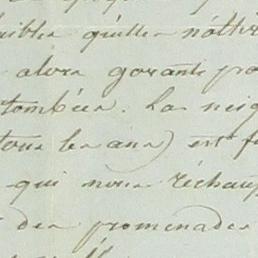 qu'elles n'attir
alors garants po
tombées. La neig
tous les ans) est f
qui nous réchauf
des promenades